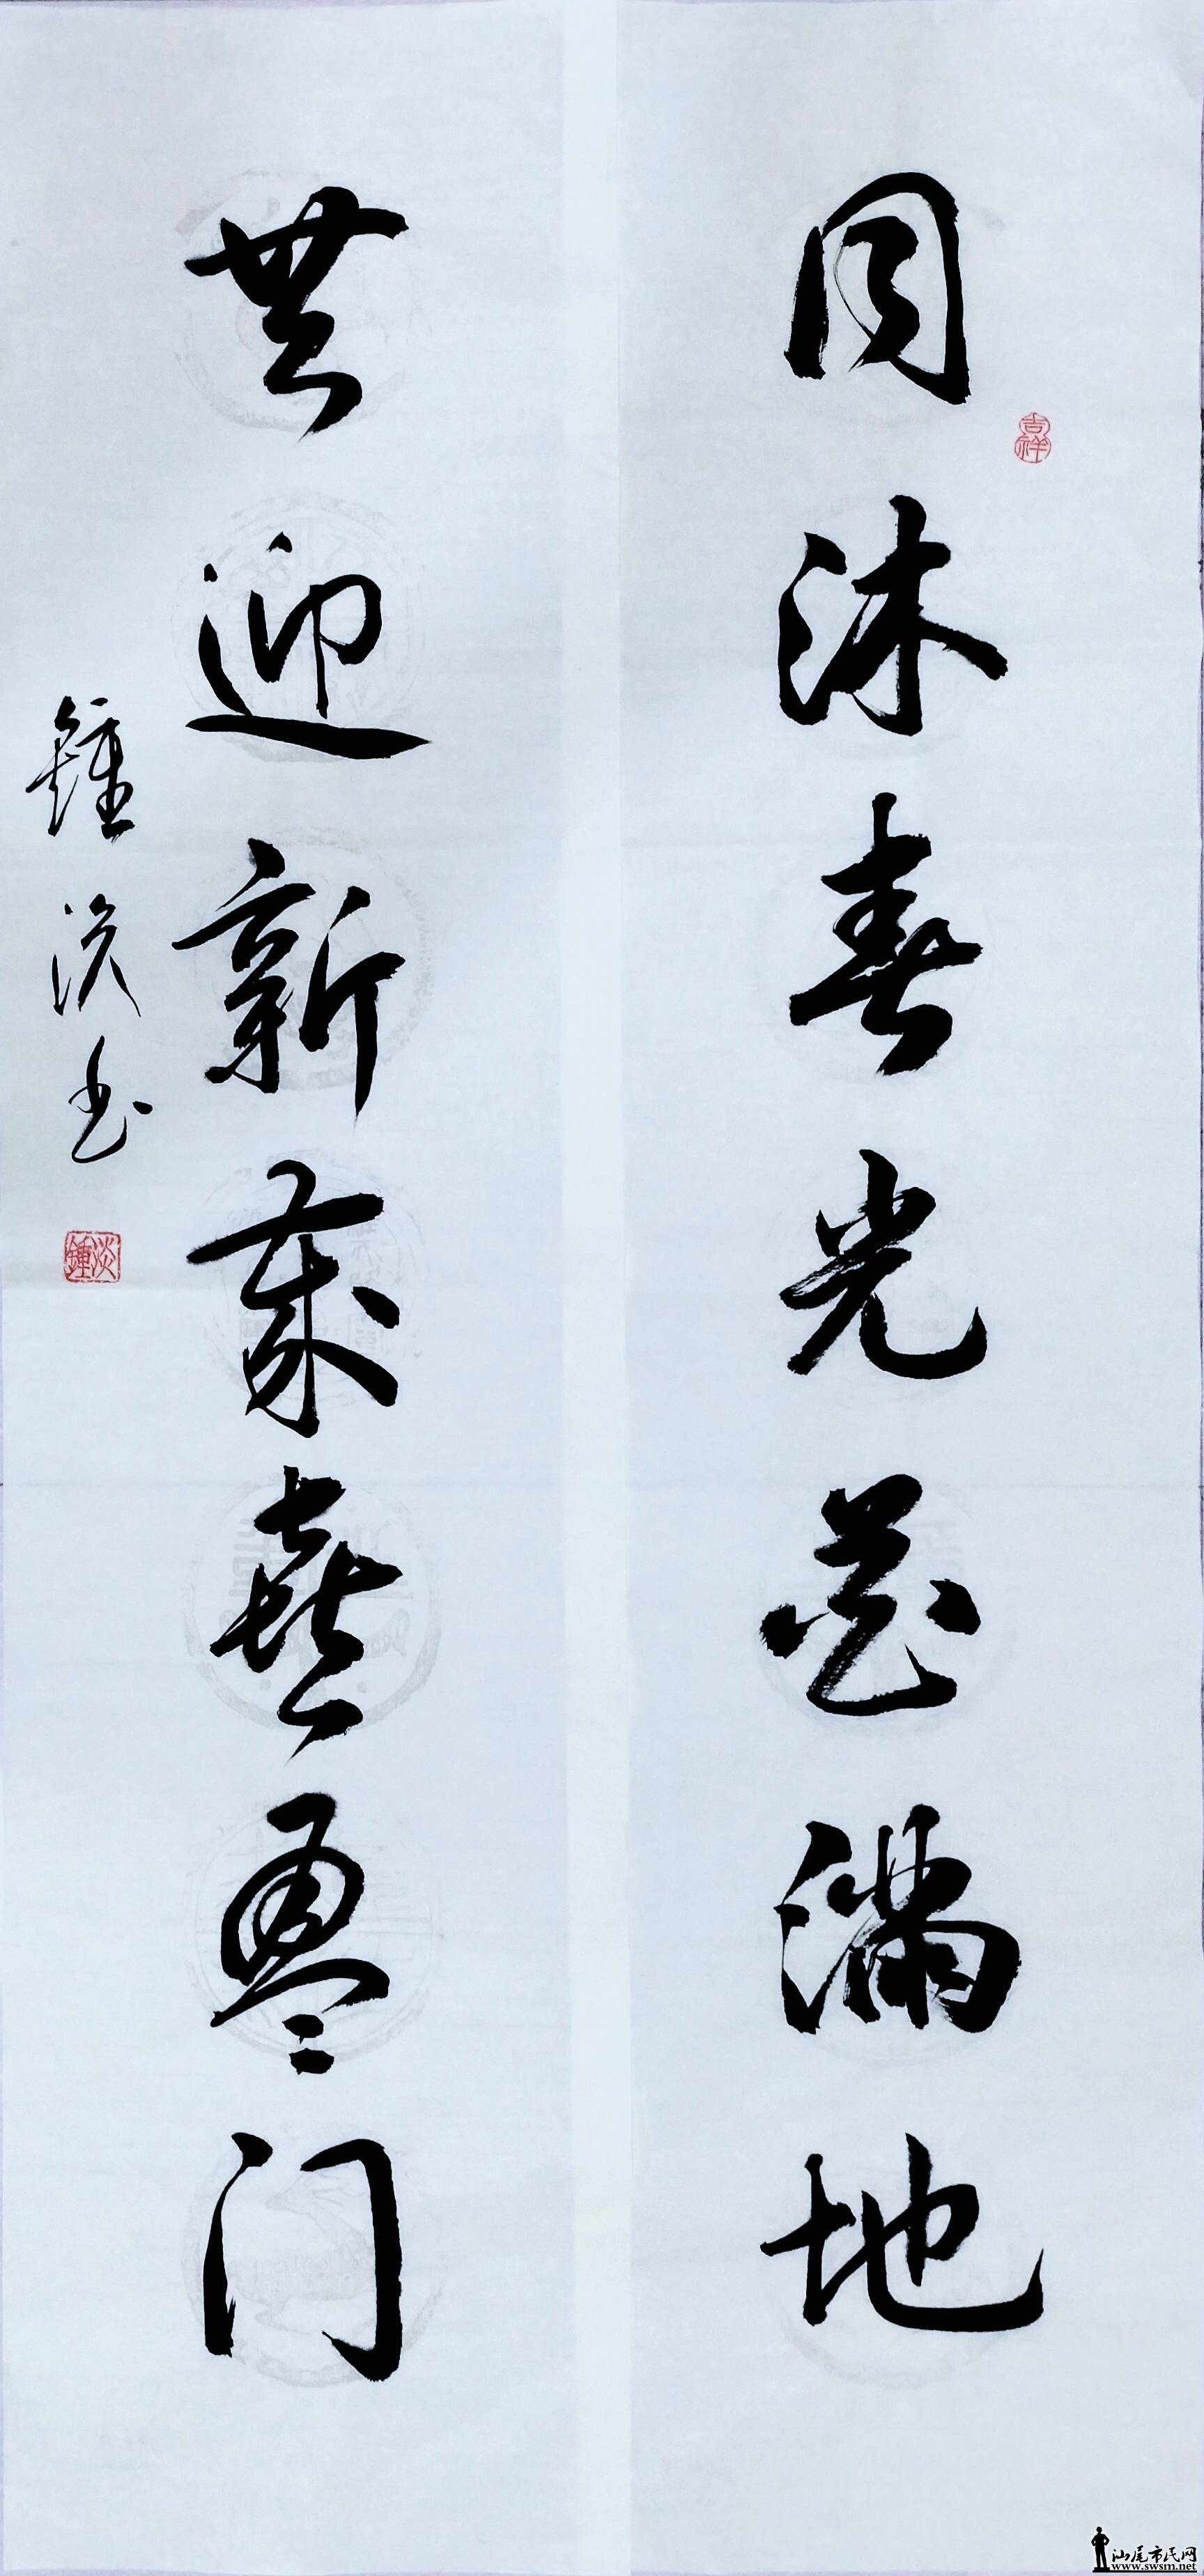 同沐春光花满地
吉祥
共迎新岁喜盈门
鍾淡书
淡鍾
汕尾市民网
www.swsm.net